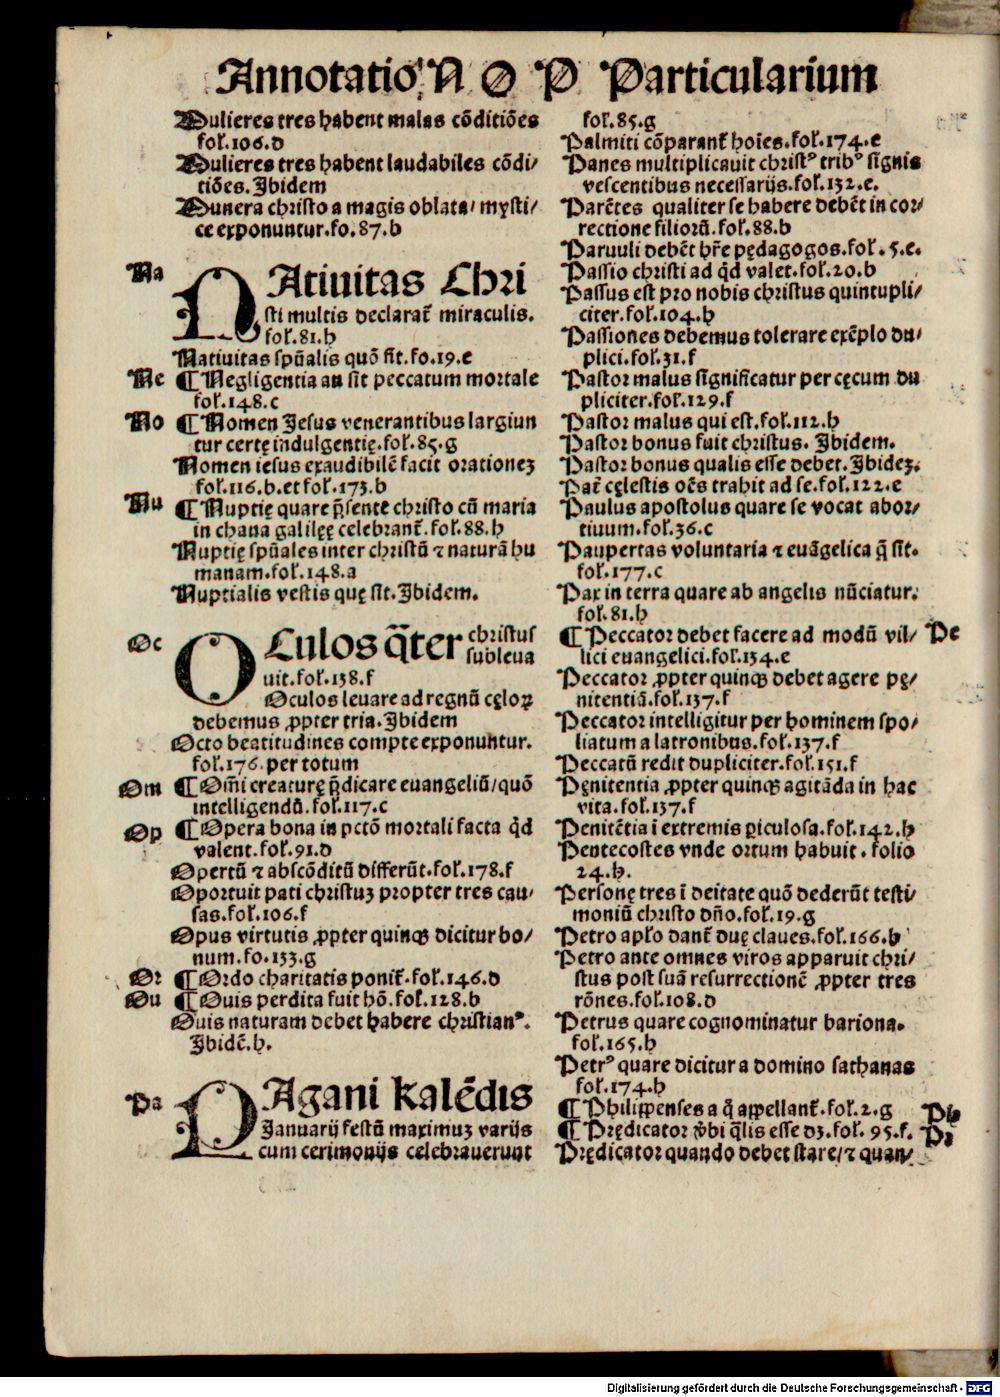 Annotatioꝰ N O P Particularium
Mulieres tres habent malas cōditiōes
fol.106.d
Mulieres tres habent laudabiles cōdi/
tiōes. Ibidem
Munera christo a magis oblata/ mysti/
ce exponuntur.fo.87.b
Na
NAtiuitas Chri
sti multis declarat̄ miraculis.
fol.81.h
Natiuitas spūalis quō sit.fo.19.e
Ne
¶ Negligentia an sit peccatum mortale
fol.148.c
No
¶ Nomen Jesus venerantibus largiun
tur certę indulgentię.fol.85.g
Nomen iesus exaudibilē facit orationeꝫ
fol.116.b.et fol.173.b
Nu
¶ Nuptię quare p̄sente christo cū maria
in chana galilęę celebrant̄.fol.88.h
Nuptię spūales inter christū ⁊ naturā hu
manam.fol.148.a
Nuptialis vestis quę sit.Ibidem.
Oc
OCulos q̄ter christus
subleua
uit.fol.138.f
Oculos leuare ad regnū cęloꝝ
debemus ꝓpter tria.Ibidem
Octo beatitudines compte exponuntur.
fol.176.per totum
Om
¶ Om̄i creaturę p̄dicare euangeliū/quō
intelligendū.fol.117.c
Op
¶ Opera bona in pctō mortali facta q̄d
valent.fol.91.d
Opertū ⁊ abscōditū differūt.fol.178.f
Oportuit pati christuꝫ propter tres cau/
sas.fol.106.f
Opus virtutis ꝓpter quinqꝫ dicitur bo/
num.fo.133.g
Or
¶ Ordo charitatis ponit̄.fol.146.d
Ou
¶ Ouis perdita fuit hō.fol.128.b
Ouis naturam debet habere christianꝰ.
Ibidē.h.
Pa
PAgani kalēdis
Januarij festū maximuꝫ varijs
cum cerimonijs celebrauerunt
fol.85.g
Palmiti cōparant̄ hoīes.fol.174.e
Panes multiplicauit christꝰ tribꝰ signis
vescentibus necessarijs.fol.132.e.
Parētes qualiter se habere debēt in cor/
rectione filiorū.fol.88.b
Paruuli debēt hr̄e pędagogos.fol.5.e.
Passio christi ad q̄d valet.fol.20.b
Passus est pro nobis christus quintupli/
citer.fol.104.h
Passiones debemus tolerare exēplo du/
plici.fol.31.f
Pastor malus significatur per cęcum du
pliciter.fol.129.f
Pastor malus qui est.fol.112.h
Pastor bonus fuit christus. Ibidem.
Pastor bonus qualis esse debet.Ibideꝫ.
Pat̄ cęlestis oēs trahit ad se.fol.122.e
Paulus apostolus quare se vocat abor/
tiuum.fol.36.c
Paupertas voluntaria ⁊ euāgelica q̄ sit.
fol.177.c
Pax in terra quare ab angelis nūciatur.
fol.81.h
¶ Peccator debet facere ad modū vil/
Pe
lici euangelici.fol.134.e
Peccator ꝓpter quinqꝫ debet agere pę/
nitentiā.fol.137.f
Peccator intelligitur per hominem spo/
liatum a latronibus.fol.137.f
Peccatū redit dupliciter.fol.151.f
Pęnitentia ꝓpter quinqꝫ agitāda in hac
vita.fol.137.f
Penitētia ī extremis ꝑiculosa.fol.142.h
Pentecostes vnde ortum habuit.folio
24.h.
Personę tres ī deitate quō dederūt testi/
moniū christo dn̄o.fol.19.g
Petro apło dant̄ duę claues.fol.166.b
Petro ante omnes viros apparuit chri/
stus post suā resurrectionē ꝓpter tres
rōnes.fol.108.d
Petrus quare cognominatur bariona.
fol.165.h
Petrꝰ quare dicitur a domino sathanas
fol.174.h
¶ Philippenses a q̄ appellant̄.fol.2.g
Ph
¶ Prędicator v̄bi q̄lis esse dꝫ.fol.95.f.
Pr
Prędicator quando debet stare/⁊ quan/
Digitalisierung gefördert durch die Deutsche Forschungsgemeinschaft - DFG